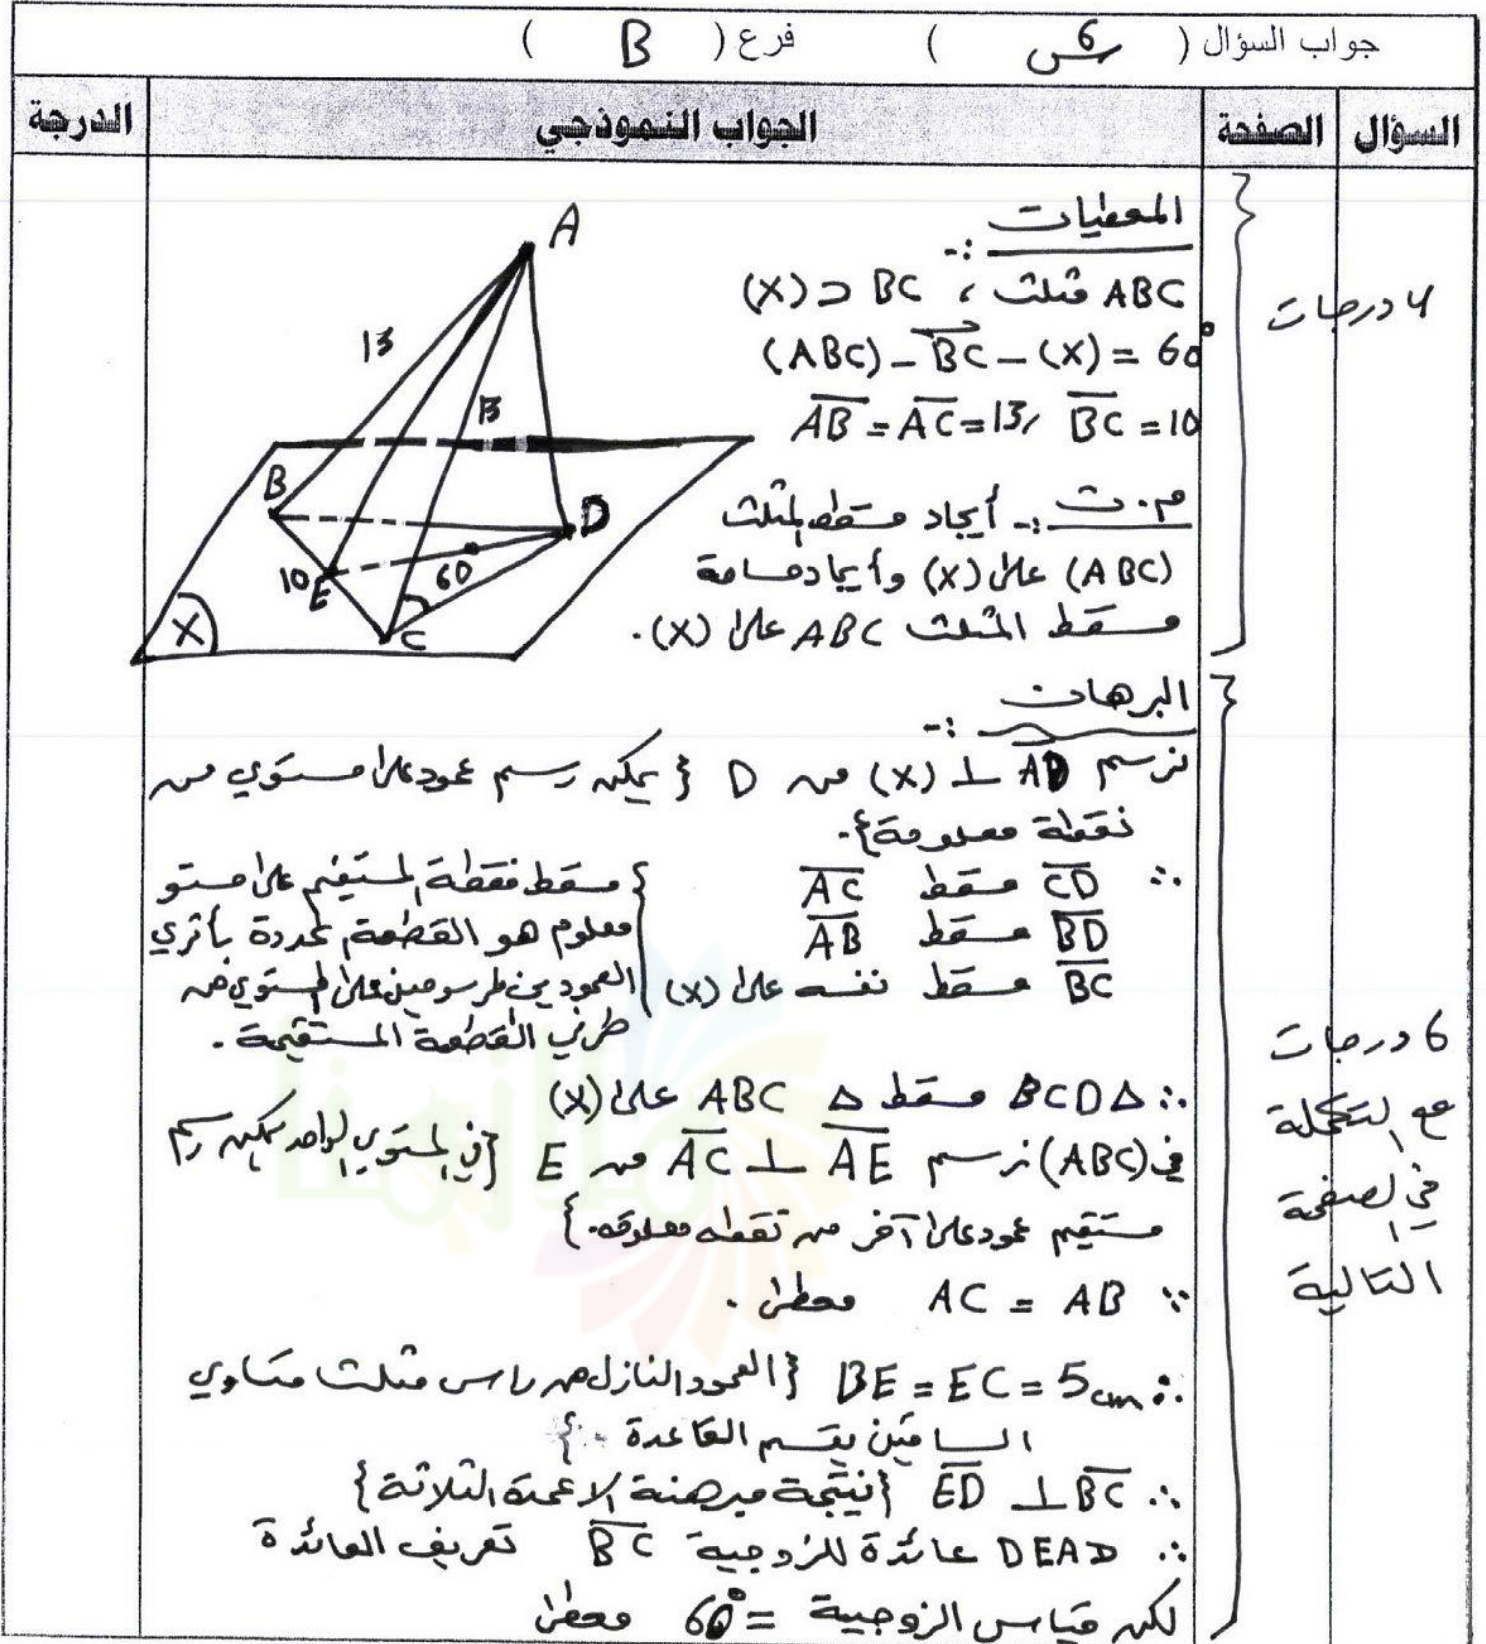 جواب السؤال ( س6 ) فرع ( B )
السؤال الصفحة الجواب النموذجي الدرجة
المعطيات :-
ABC مثلث ، BC ⊂ (X)
(ABC) – BC – (X) = 60°
AB = AC = 13, BC = 10
م. ث :- أيجاد مسقط المثلث
(ABC) على (X) وأيجاد مساحة
مسقط المثلث ABC على (X).
4 درجات
A
13
13
B
D
10
E
60
C
X
البرهان :-
نرسم AD ⊥ (X) من D { يمكن رسم عمود على مستوي من
نقطة معلومة }.
∴ CD مسقط AC
BD مسقط AB
BC مسقط نفسه على (X)
} مسقط قطعة المستقيم على مستو
معلوم هو القطعة المحددة بأثري
العمودين المرسومين على المستوي من
طرفي القطعة المستقيمة .
∴ BCD Δ مسقط Δ ABC على (X)
في (ABC) نرسم AE ⊥ AC من E {في المستوي الواحد يمكن رسم
مستقيم عمود على آخر من نقطه معلومه.}
∵ AC = AB معطى .
∴ BE = EC = 5cm {العمود النازل من راس مثلث متساوي
الساقين يقسم القاعدة }
∴ ED ⊥ BC {نتيجة مبرهنة الاعمدة الثلاثة}
∴ DEAD عائدة للزوجية BC تعريف العائدة
لكن قياس الزوجية = 60° معطى
6 درجات
مع التكملة
في الصفحة
التالية